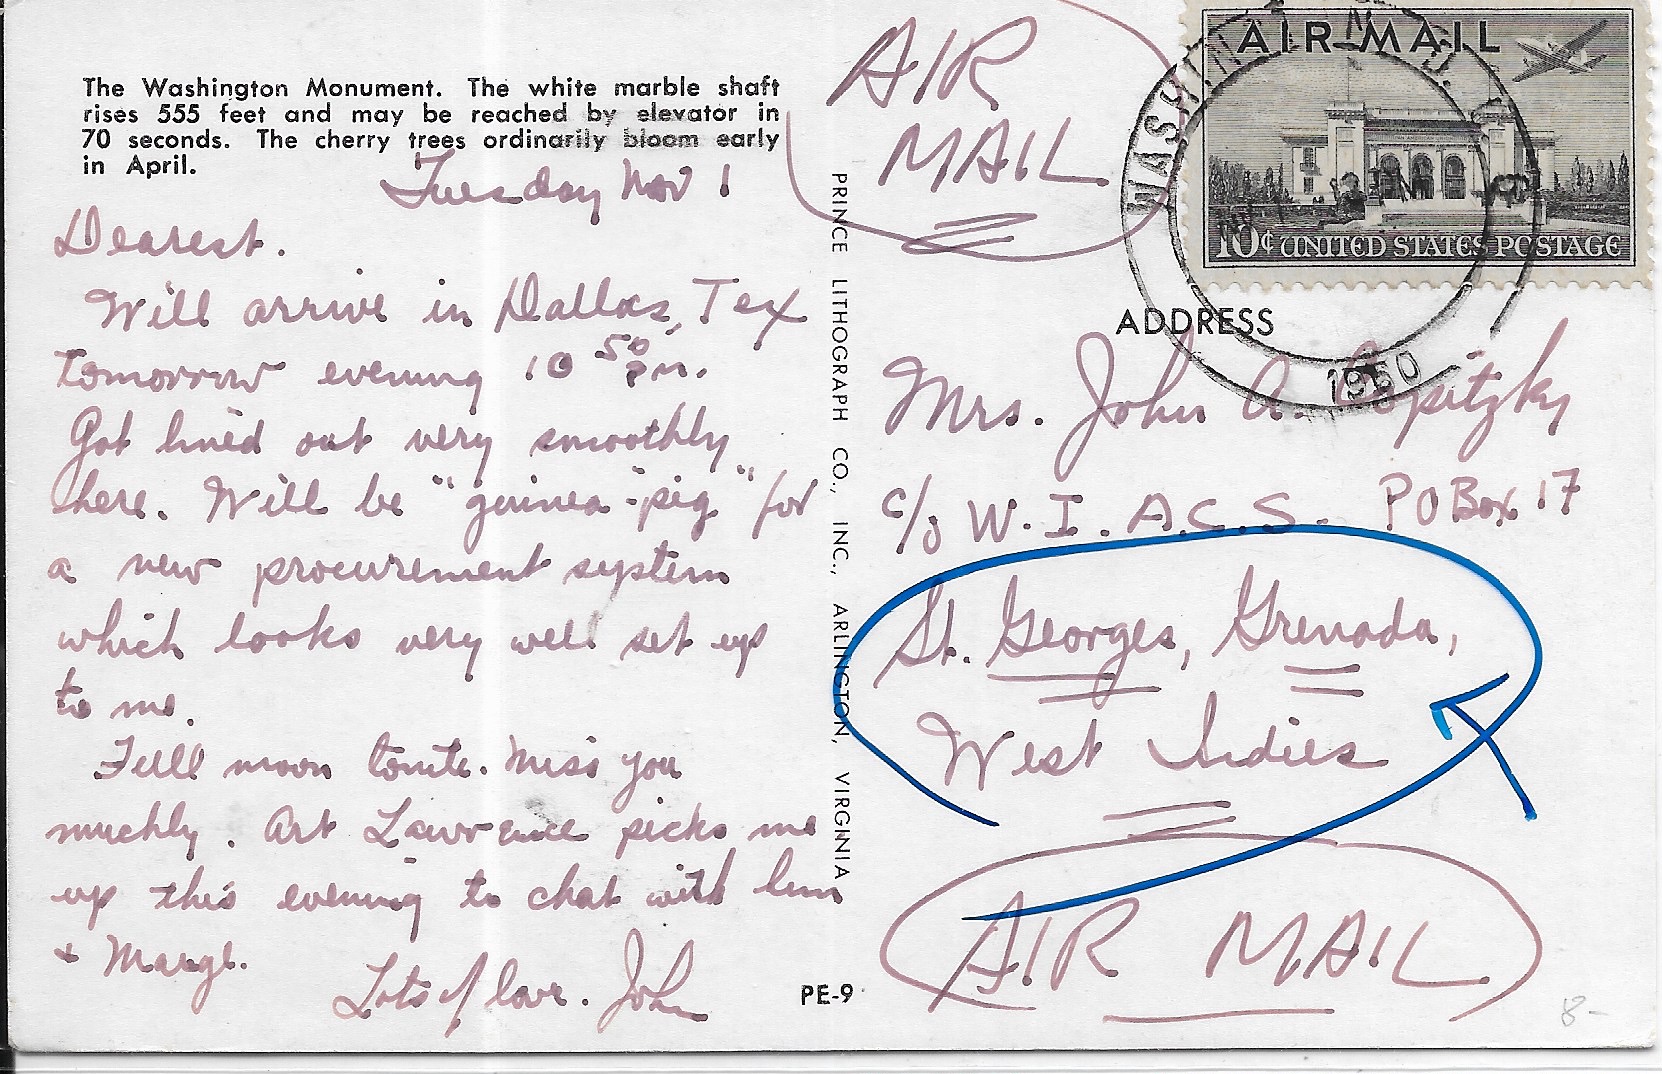 The Washington Monument. The white marble shaft
rises 555 feet and may be reached by elevator in
70 seconds. The cherry trees ordinarily bloom early
in April.
Tuesday Nov 1
Dearest.
Will arrive in Dallas, Tex
tomorrow evening 10 50 P.m.
Got lined out very smoothly
here. Will be "guinea-pig" for
a new procurement system
which looks very well set up
to me.
Full moon tonite. Miss you
muchly. Art Lawrence picks me
up this evening to chat with him
+ Marge.
Lots of love. John
PRINCE LITHOGRAPH CO., INC., ARLINGTON, VIRGINIA
PE-9
AIR
MAIL
AIR MAIL
10¢ UNITED STATES POSTAGE
WASHINGTON
1950
ADDRESS
Mrs. John A. Kopitzky
c/o W.I.A.C.S. P O Box 17
St. Georges, Grenada,
West Indies
AIR MAIL
8-